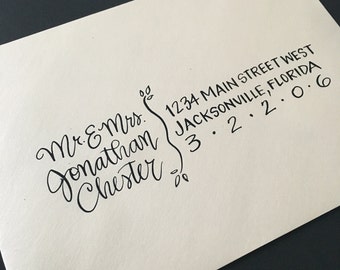 Mr. & Mrs.
Jonathan
Chester
1234 MAIN STREET WEST
JACKSONVILLE, FLORIDA
3 · 2 · 2 · 0 · 6